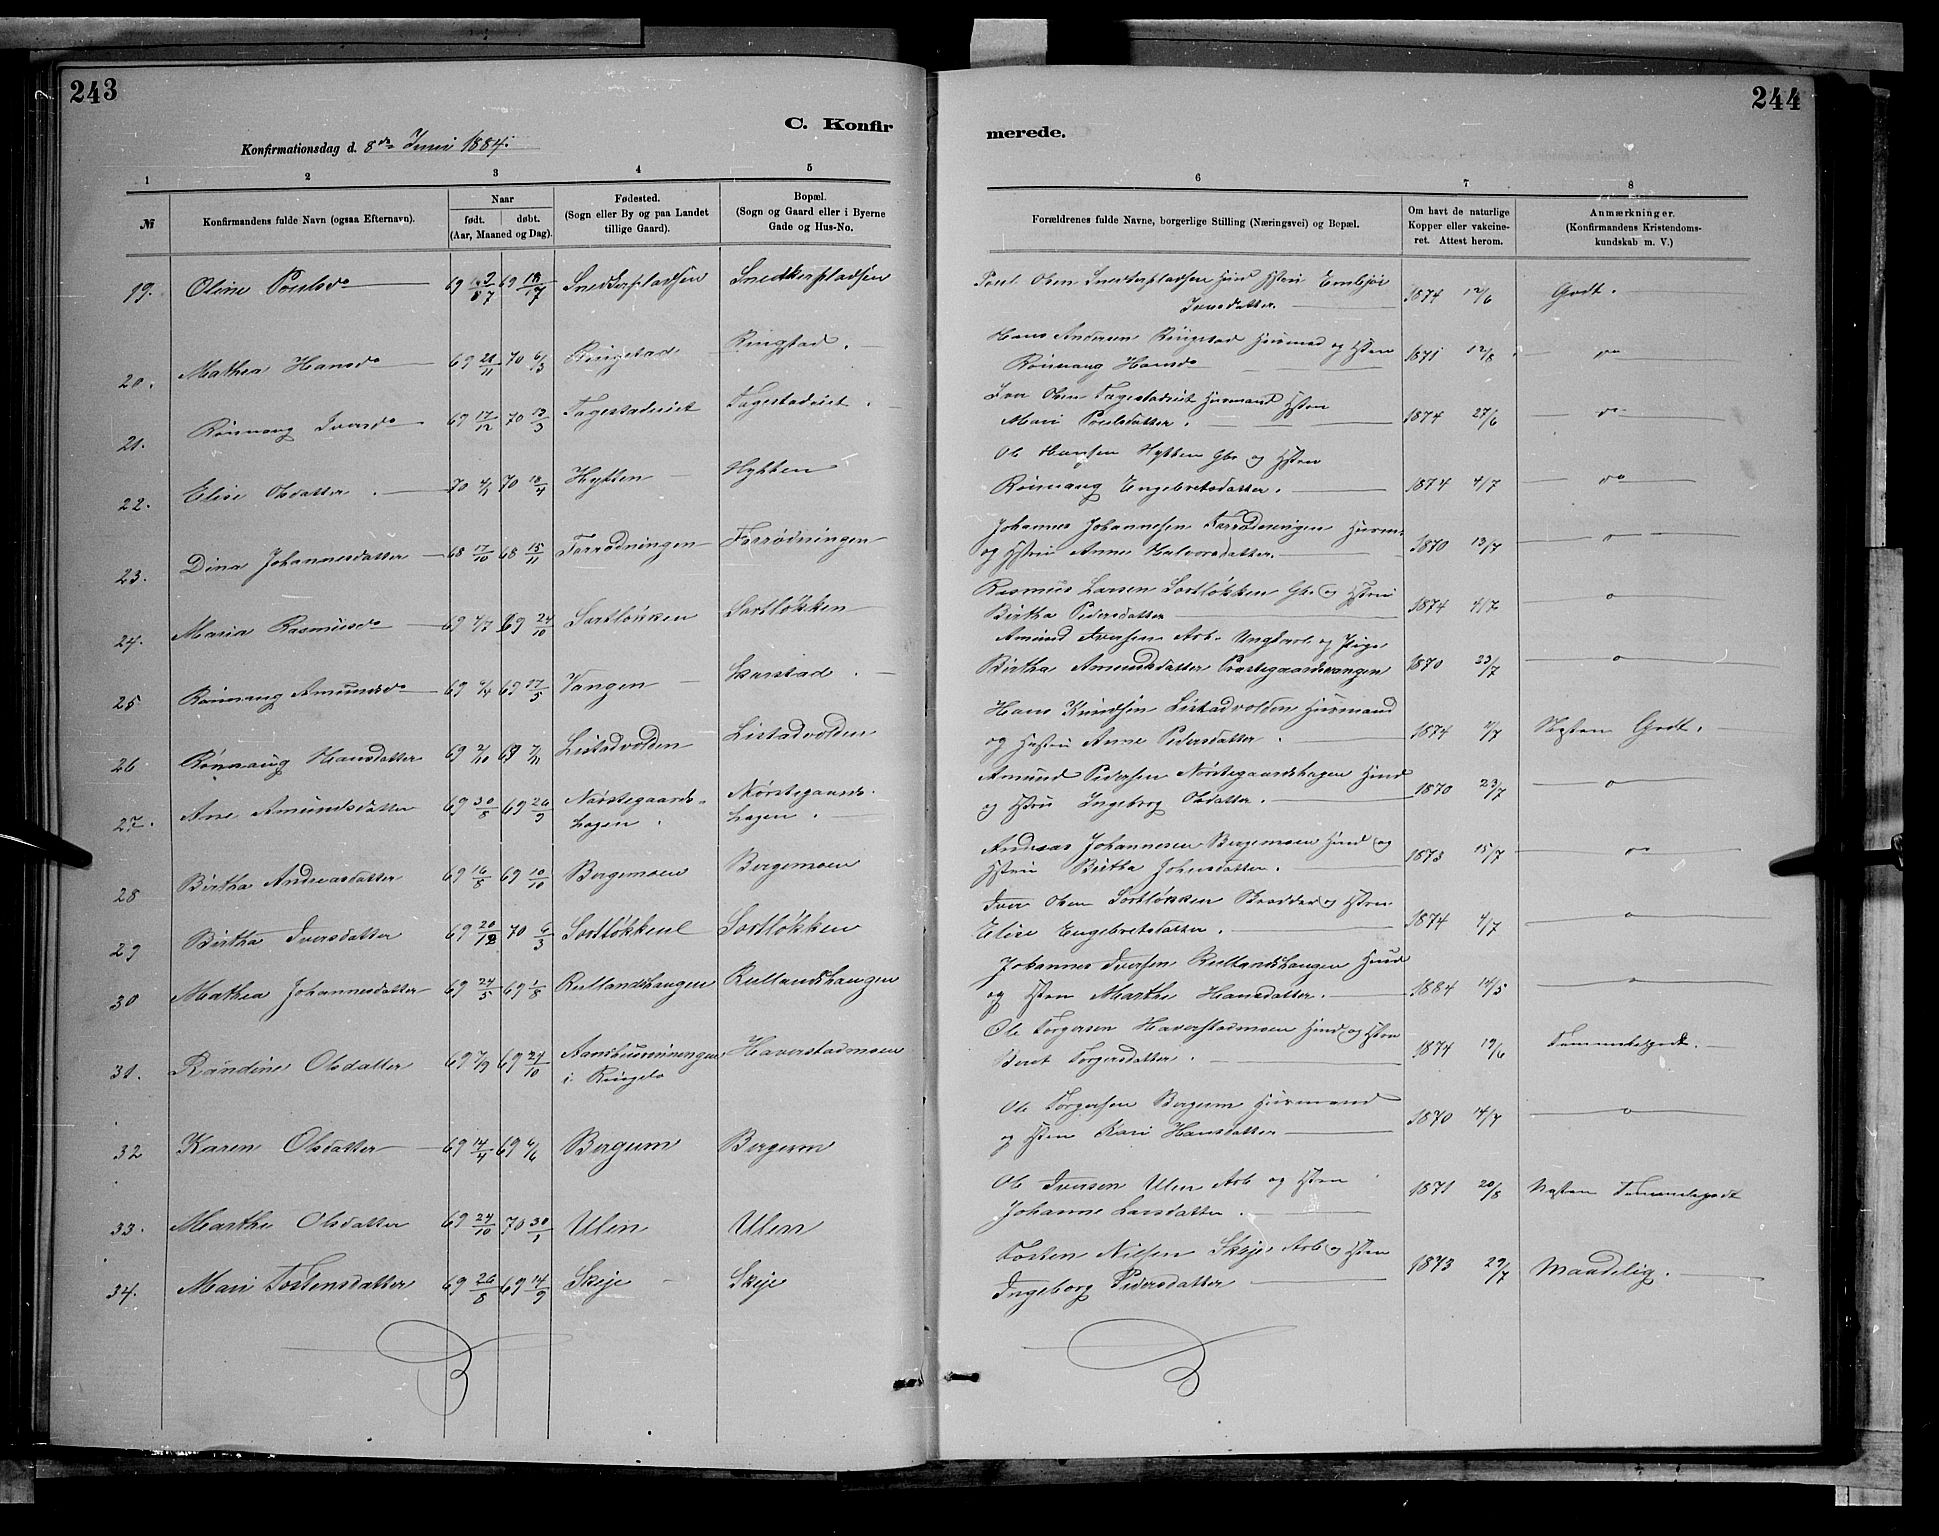 243
244
C. Konfir
merede.
Konfirmationsdag d. 8de Juni 1884.
1 2 3 4 5
6 7 8
№ Konfirmandens fulde Navn (ogsaa Efternavn).
Naar
født. døbt.
(Aar, Maaned og Dag).
Fødested.
(Sogn eller By og paa Landet
tillige Gaard).
Bopæl.
(Sogn og Gaard eller i Byerne
Gade og Hus-No.
Forældrenes fulde Navne, borgerlige Stilling (Næringsvei) og Bopæl.
Om havt de naturlige
Kopper eller vakcine-
ret. Attest herom.
Anmærkninger.
(Konfirmandens Kristendoms-
kundskab m. V.)
19. Oline Poulsdo Snedkerpladsen Snedkerpladsen
Poul Olsen Snedkerpladsen Hmd Hstru Embjør
Iversdatter. 1874 12/6 Godt.
20. Mathea Hansdo 69 21/11 70 6/3 Ringstad Ringstad.
Hans Andersen Ringstad Husmand og Hstru
Rönnaug Hansdo 1871 12/8 do
21. Rönnaug Iversdo 69 17/12 70 13/3 Fagestadeiet Fagestadeiet.
Iver Olsen Fagestadeiet Husmand Hstru
Mari Poulsdatter. 1874 27/6 do
22. Elise Olsdatter. 70 70 18/4 Hytten Hytten
Ole Hansen Hytten Gbr og Hstru
Rönnaug Engebretsdatter. 1874 4/7 do
23. Dina Johannesdatter 68 17/10 68 15/11 Forrødningen Forrødningen
Johannes Johannesen Forrødningen Husm.
og Hstru Anne Halvorsdatter. 1870 13/7 o
24. Maria Rasmusdo 69 4/7 69 24/10 Sortløkken Sortløkken
Rasmus Larsen Sortløkken Gbr. og Hstru
Birtha Pedersdatter 1874 4/7 o
25 Rönnaug Amundsdo 69 69 27/5 Vangen
Amund Iversen Arb. Ungkarl og Pige
Birtha Amundsdatter Præstegaardsvangen 1870 23/7 o
26 Rønnaug Hansdatter 69 2/10 69 7/11 Listadvolden Listadvolden
Hans Knudsen Listadvolden Husmand
og Hustru Anne Pedersdatter. 1874 Næsten Godt.
27. Ane Amundsdatter 69 30/8 69 26/9 Nørstegaards-
hagen. Nørstegaards-
hagen.
Amund Pedersen Nørstegaardshagen Hmd
og Hstru Ingeborg Olsdatter. 1870 23/7 o
28 Birtha Andreasdatter 69 16/8 69 10/10 Bergemoen Bergemoen
Andreas Johannesen Bergemoen Hmd og
Hstru Birtha Johnsdatter. 1873 15/7 do
29 Birtha Iversdatter 69 20/12 70 6/3 Sortløkken Sortløkken
Iver Olsen Sortløkken Skrædder og Hstru
Elise Engebretsdatter. 1874 4/7 o
30 Mathea Johannesdatter 69 24/5 69 1/8 Rullandshaugen Rullandshaugen
Johannes Iversen Rullandshaugen Hmd
og Hstru Marthe Hansdatter. 1884 14/5 o
31. Randine Olsdatter 69 7/9 69 24/10
i Ringebo Haverstadmoen
Ole Torgersen Haverstadmoen Hmd og Hstru
Berit Torgersdatter. 1874 19/6 Temmeligodt.
32 Karen Olsdatter 69 14/4 69 6/6 Bergum Bergum
Ole Torgersen Bergum Husmand
og Hstru Kari Hansdatter 1870 14/7 o
33. Marthe Olsdatter 69 24/10 70 30/1 Ulen Ulen
Ole Iversen Ulen Arb og Hstru
Johanne Larsdatter. 1871 20/8 Næsten Temmeligodt
34. Mari Tostensdatter 69 26/8 69 14/9 Skeje Skeje
Tosten Nilsen Skeje Arb og Hstru
Ingeborg Pedersdatter 1873 29/7 Maadelig.